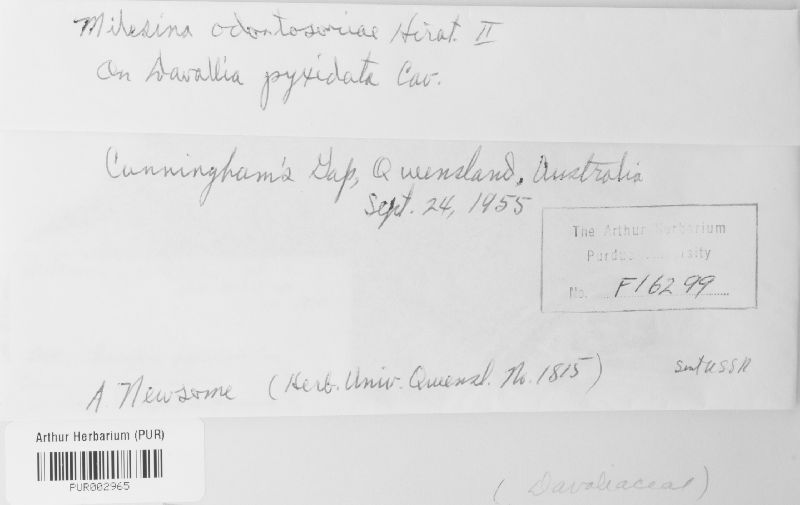 Milesina odontosoriae Hirat. II
On Davallia pyxidata Cav.
Cunningham's Gap, Queensland, Australia
Sept. 24, 1955
The Arthur Herbarium
Purdue University
No. F16299
A. Newsome (Herb. Univ. Queensl. No. 1815)
sent USSR
Arthur Herbarium (PUR)
PUR002965
(Davaliaceae)